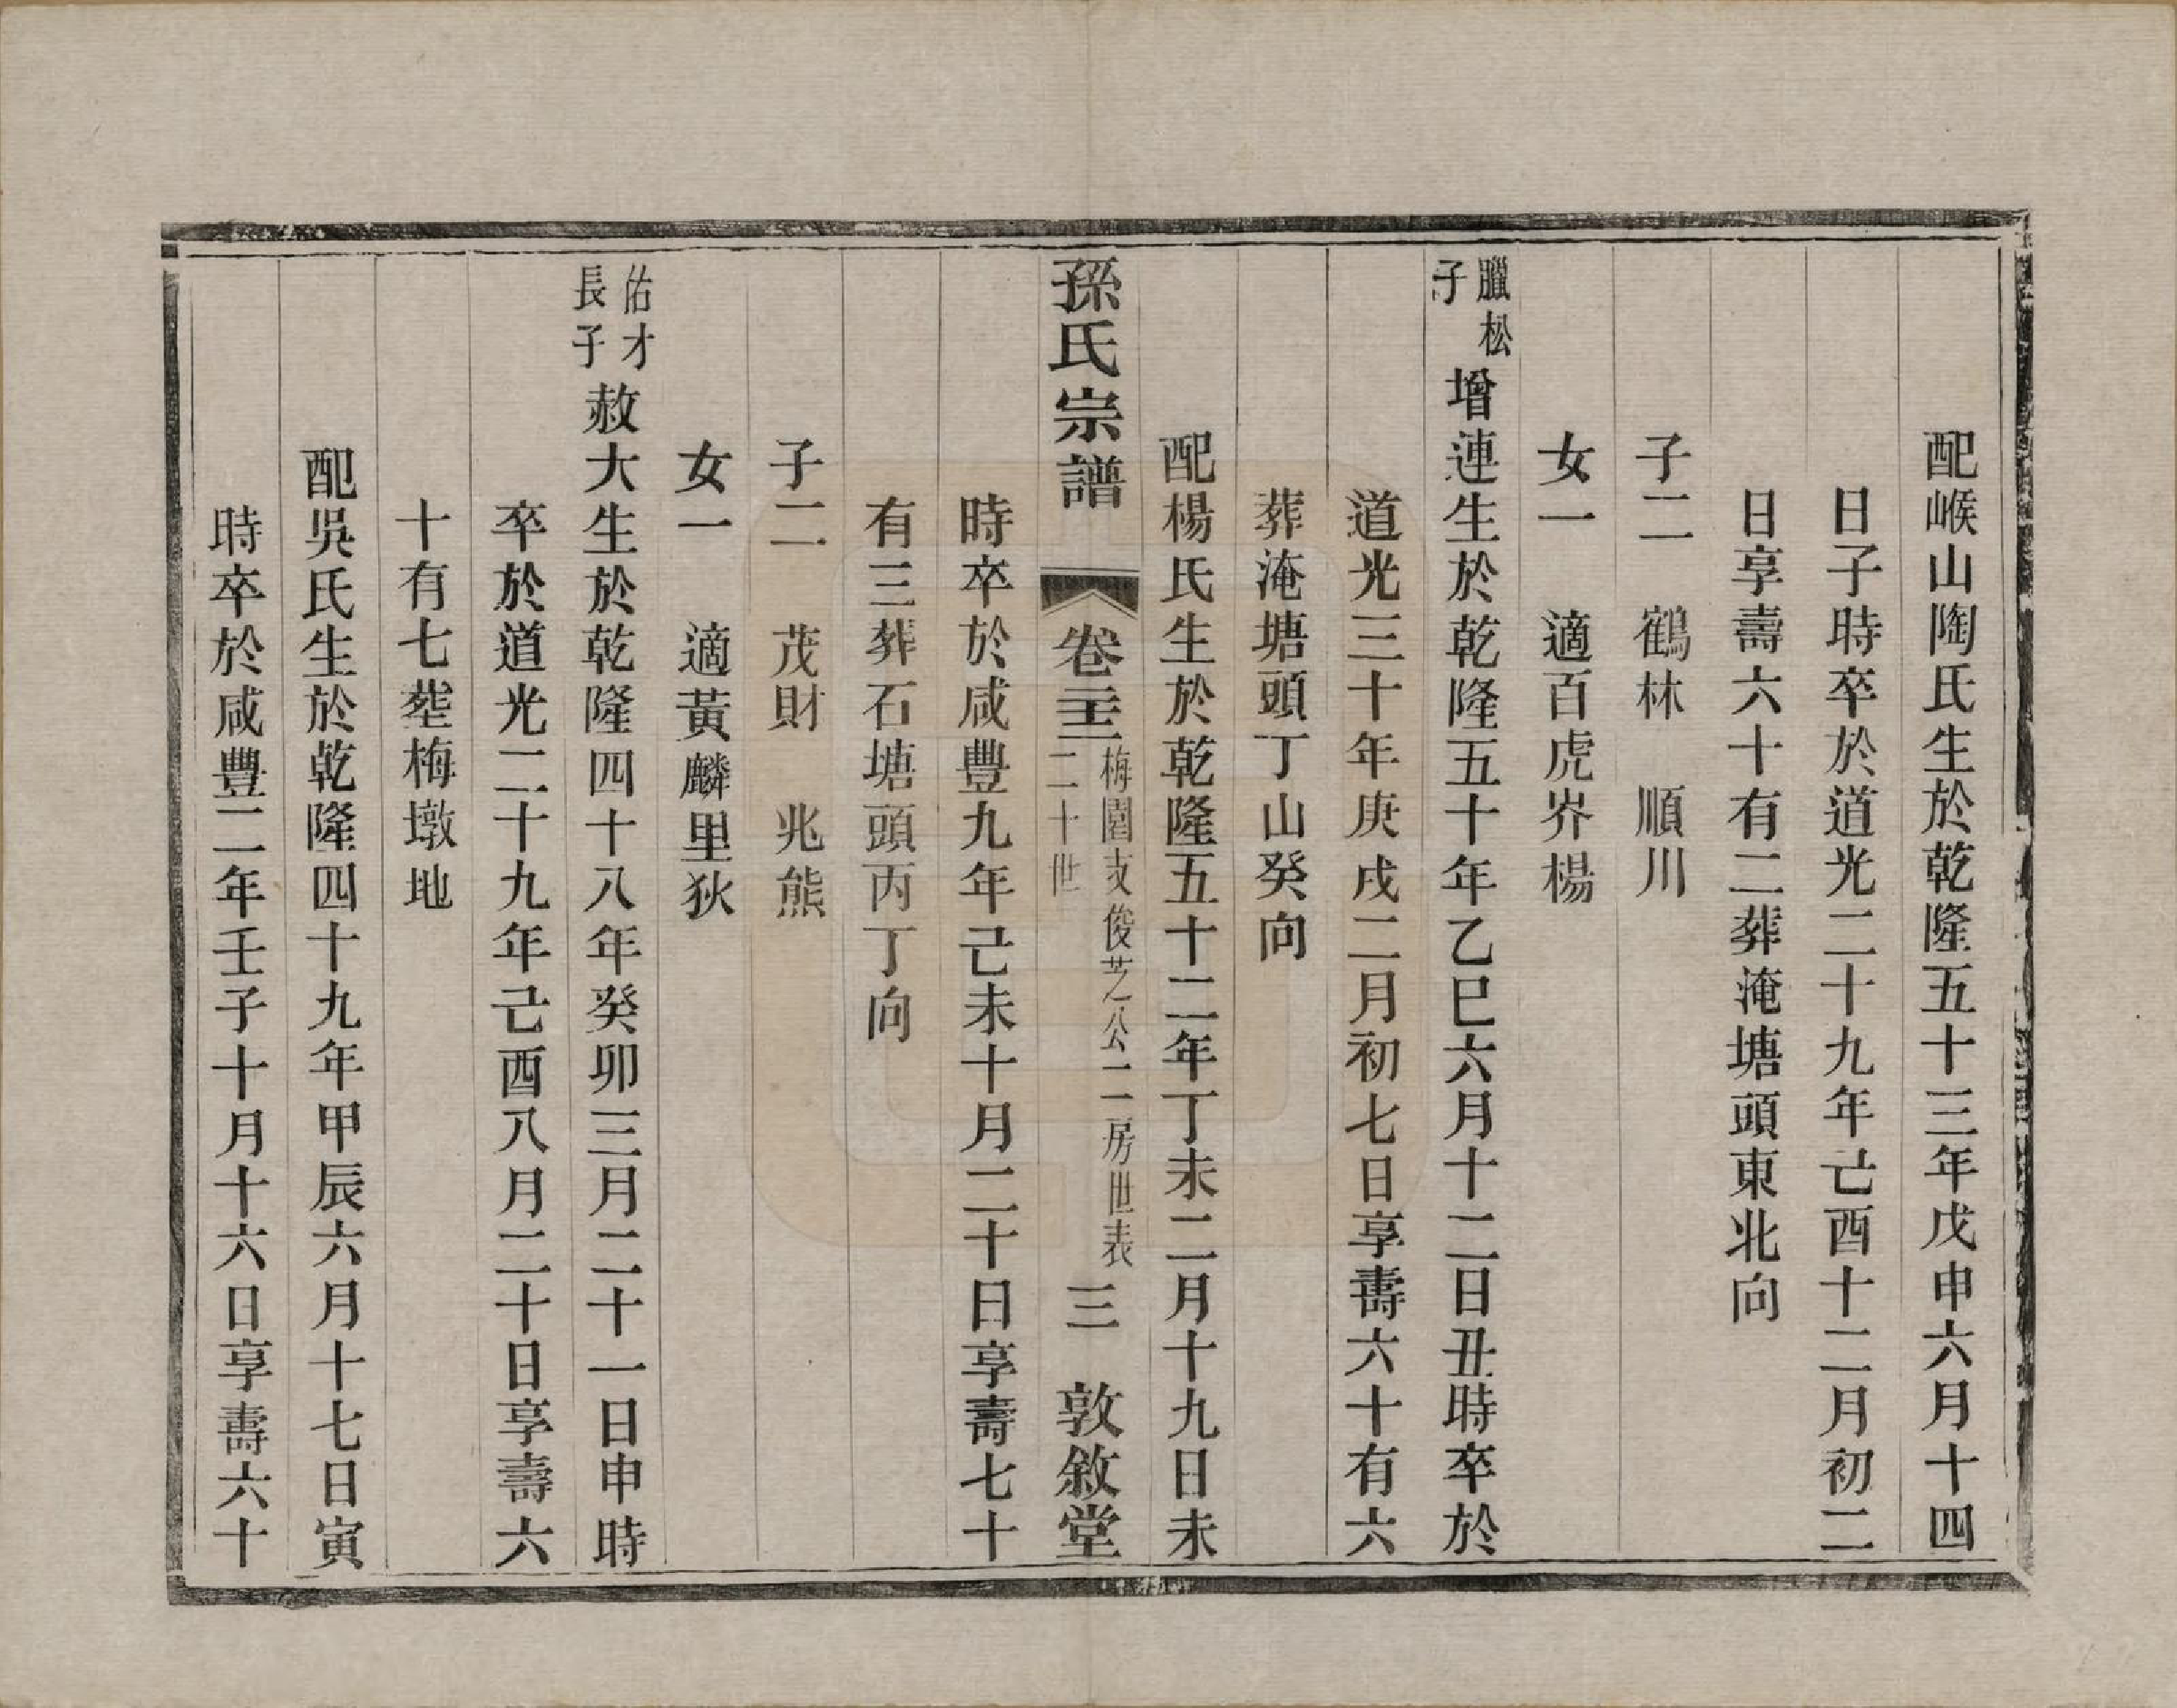 配㬋山陶氏生於乾隆五十三年戊申六月十四
日子時卒於道光二十九年己酉十二月初二
日享壽六十有二葬淹塘頭東北向
子二　鶴林　順川
女一　適百虎岕楊
臘松子　增連生於乾隆五十年乙巳六月十二日丑時卒於
道光三十年庚戌二月初七日享壽六十有六
葬淹塘頭丁山癸向
配楊氏生於乾隆五十二年丁未二月十九日未
孫氏宗譜　卷　梅園支俊芝公二房世表　二十世　三　敦敘堂
時卒於咸豐九年己未十月二十日享壽七十
有三葬石塘頭丙丁向
子二　茂財　兆熊
女一　適黃麟里狄
佑才長子　赦大生於乾隆四十八年癸卯三月二十一日申時
卒於道光二十九年己酉八月二十日享壽六
十有七塟梅墩地
配吳氏生於乾隆四十九年甲辰六月十七日寅
時卒於咸豐二年壬子十月十六日享壽六十